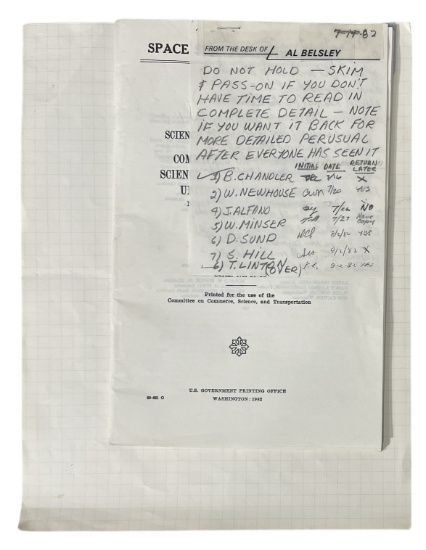 7-14-82
SPACE
FROM THE DESK OF AL BELSLEY
DO NOT HOLD — SKIM
& PASS-ON IF YOU DON'T
HAVE TIME TO READ IN
COMPLETE DETAIL — NOTE
IF YOU WANT IT BACK FOR
MORE DETAILED PERUSUAL
AFTER EVERYONE HAS SEEN IT
INITIAL DATE RETURN LATER
✓ 1) B. CHANDLER 7/16 X
2) W. NEWHOUSE 7/20 YES
4) J. ALFANO 7/22 NO
5) W. MINSER 7/27
6) D. SUND YES
7) S. HILL X
6) T. LINTON
(OVER)
SCIEN
COM
SCIEN
U
Printed for the use of the
Committee on Commerce, Science, and Transportation
U.S. GOVERNMENT PRINTING OFFICE
WASHINGTON : 1982